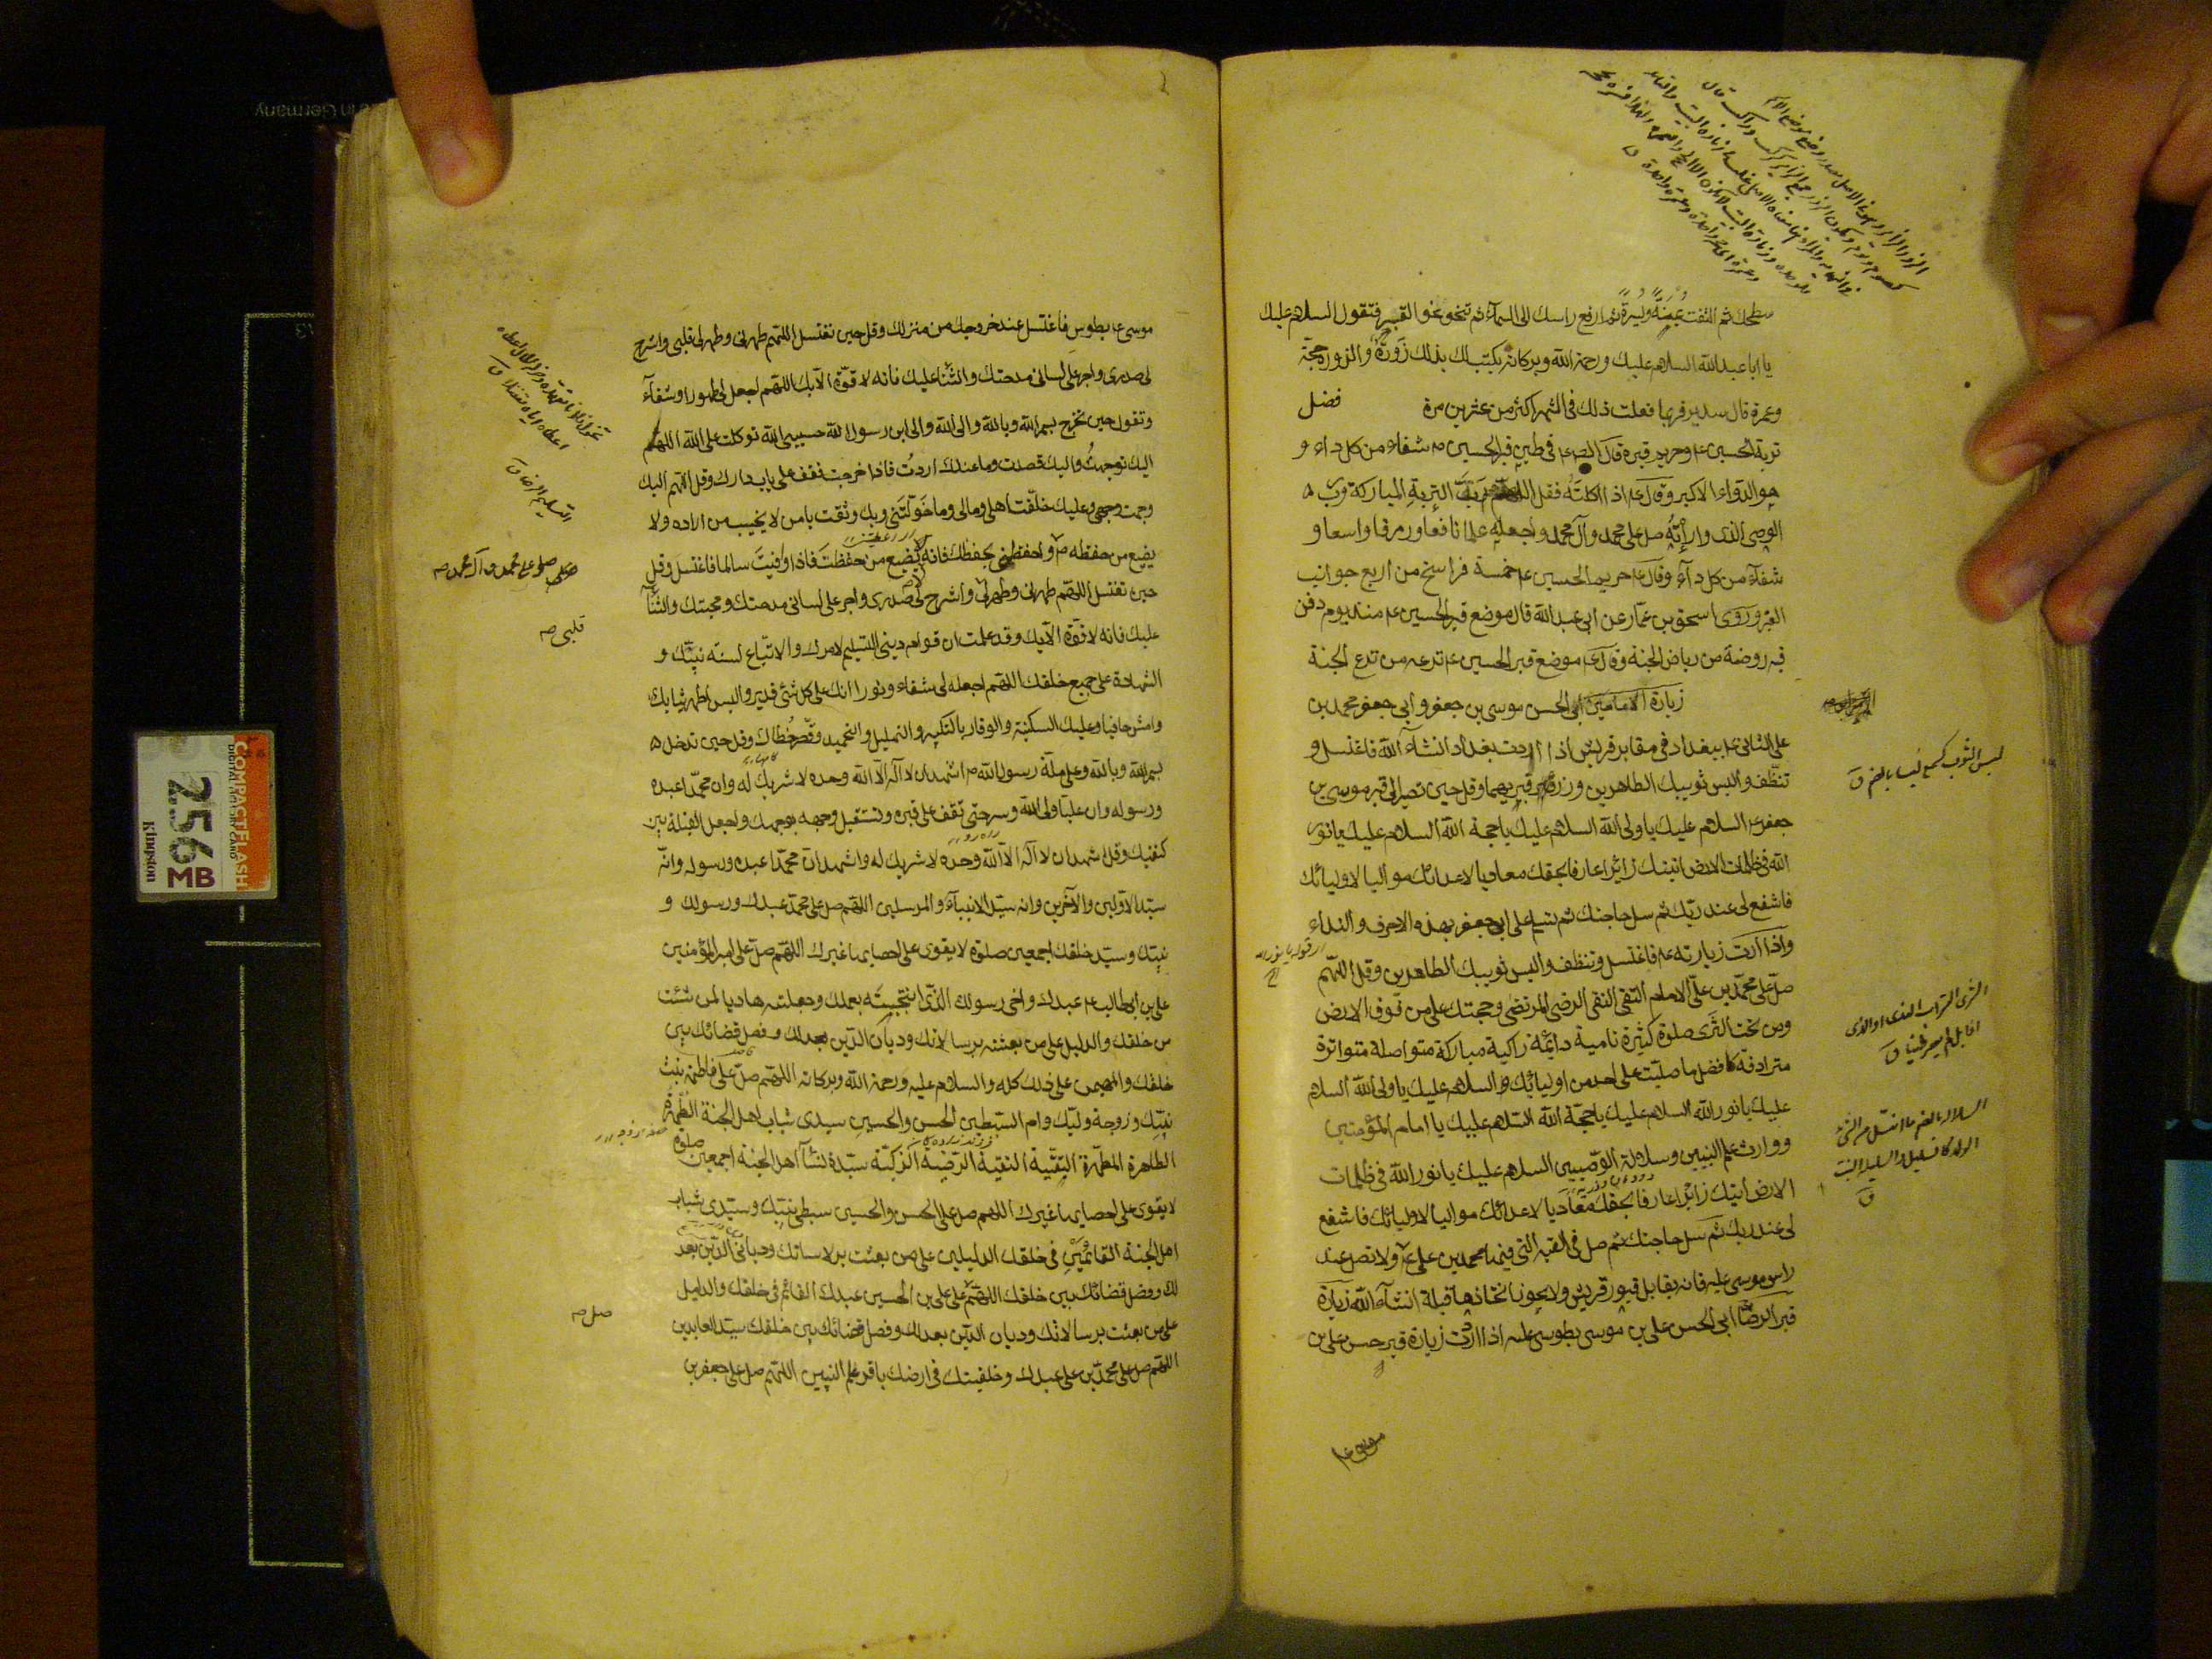 سطحك ثم التفت يمنة ويسرة ثم ارفع راسك الى السماء ثم تنحو نحو القبر فتقول السلام عليك
يا ابا عبد الله السلام عليك ورحمة الله وبركاته يكتب لك بذلك زورة والزورة حجة
وعمرة قال سدير فربما فعلت ذلك فى الشهر اكثر من عشرين مرة فضل
تربة الحسين ع وحريم قبره قال الص ع فى طين قبر الحسين ع شفاء من كل داء و
هو الدواء الاكبر وقال ع اذا اكلته فقل اللهم رب التربة المباركة ورب
الوصى الذى وارته صل على محمد وآل محمد واجعله علما نافعا ورزقا واسعا و
شفآء من كل دآء وقال ع حريم الحسين ع خمسة فراسخ من اربع جوانب
القبر وروى اسحق بن عمار عن ابى عبد الله قال موضع قبر الحسين ع منذ يوم دفن
فيه روضة من رياض الجنة وقال ع موضع قبر الحسين ع ترعه من ترع الجنة
زيارة الامامين ابى الحسن موسى بن جعفر وابى جعفر محمد بن
على الثانى ع ببغداد فى مقابر قريش اذا اردت بغداد انشآء الله فاغتسل و
تنظف والبس ثوبيك الطاهرين وزر قبريهما وقل حين تصير الى قبر موسى بن
جعفر ع السلام عليك يا ولى الله السلام عليك يا حجة الله السلام عليك يا نور
الله فى ظلمات الارض اتيتك زائرا عارفا بحقك معاديا لاعدائك مواليا لاوليائك
فاشفع لى عند ربك ثم سل حاجتك ثم تسلم على ابى جعفر بهذه الاحرف والنداء
واذا اردت زيارته ع فاغتسل وتنظف والبس ثوبيك الطاهرين وقل اللهم
صل على محمد بن على الامام التقى النقى الرضى المرتضى وحجتك على من فوق الارض
ومن تحت الثرى صلوة كثيرة نامية دائمة زاكية مباركة متواصلة متواترة
مترادفة كافضل ما صليت على احد من اوليائك والسلام عليك يا ولى الله السلام
عليك يا نور الله السلام عليك يا حجة الله السلام عليك يا امام المؤمنين
ووارث علم النبيين وسلالة الوصيين السلام عليك يا نور الله فى ظلمات
الارض اتيتك زائرا عارفا بحقك معاديا لاعدائك مواليا لاوليائك فاشفع
لى عند ربك ثم سل حاجتك ثم صل فى القبة التى فيها محمد بن على ع ولا تصل عند
راس موسى عليه فانه يقابل قبور قريش ولا يجوز اتخاذها قبلة انشآء الله زيارة
قبر الرضا ابى الحسن على بن موسى بطوس عليه اذا اردت زيارة قبر حسن على بن
موسى ع
لبس الثوب كسمع لبسا بالضم ق
الثرى التراب الندى
موسى ع بطوس فاغتسل عند خروجك من منزلك وقل حين تغتسل اللهم طهرنى وطهر لى قلبى واشرح
لى صدرى واجر على لسانى مدحتك والثناء عليك فانه لا قوة الا بك اللهم اجعل لى طهورا وشفآء
وتقول حين تخرج بسم الله وبالله والى الله والى ابن رسول الله حسبى الله توكلت على الله اللهم
اليك توجهت واليك قصدت وما عندك اردت فاذا خرجت فقف على باب دارك وقل اللهم اليك
وجهت وجهى وعليك خلفت اهلى ومالى وما خولتنى وبك وثقت يا من لا يخيب من اراده ولا
يضيع من حفظه واحفظنى بحفظك فانه لا يضيع من حفظت فاذا وافيت سالما فاغتسل وقل
حين تغتسل اللهم طهرنى وطهر لى واشرح لى صدرى واجر على لسانى مدحتك ومحبتك والثنآء
عليك فانه لا قوة الا بك وقد علمت ان قوام دينى التسليم لامرك والاتباع لسنة نبيك و
الشهادة على جميع خلقك اللهم اجعله لى شفاء ونورا انك على كل شئ قدير والبس اطهر ثيابك
وامش حافيا وعليك السكينة والوقار بالتكبير والتهليل والتحميد وقصر خطاك وقل حين تدخل
بسم الله وبالله وعلى ملة رسول الله ص اشهد ان لا اله الا الله وحده لا شريك له وان محمدا عبده
ورسوله وان عليا ولى الله وسر حتى تقف على قبره وتستقبل وجهه بوجهك واجعل القبلة بين
كتفيك وقل اشهد ان لا اله الا الله وحده لا شريك له واشهد ان محمدا عبده ورسوله وانه
سيد الاولين والآخرين وانه سيد الانبيآء والمرسلين اللهم صل على محمد عبدك ورسولك و
نبيك وسيد خلقك اجمعين صلوة لا يقوى على احصايها غيرك اللهم صل على امير المؤمنين
على بن ابى طالب ع عبدك واخى رسولك الذى انتجبته بعلمك وجعلته هاديا لمن شئت
من خلقك والدليل على من بعثته برسالاتك وديان الدين بعدلك وفصل قضائك بين
خلقك والمهيمن على ذلك كله والسلام عليه ورحمة الله وبركاته اللهم صل على فاطمة بنت
نبيك وزوجة وليك وام السبطين الحسن والحسين سيدى شباب اهل الجنة الطهرة
الطاهرة المطهرة التقية النقية الرضية الزكية سيدة نسآء اهل الجنة اجمعين صلوة
لا يقوى على احصايها غيرك اللهم صل على الحسن والحسين سبطى نبيك وسيدى شباب
اهل الجنة القائمين فى خلقك الدليلين على من بعثت برسالاتك وديانى الدين بعد
لك وفصل قضائك بين خلقك اللهم على على بن الحسين عبدك القائم فى خلقك والدليل
على من بعثت برسالاتك وديان الدين بعدلك وفصل قضائك بين خلقك سيد العابدين
اللهم صل على محمد بن على عبدك وخليفتك فى ارضك باقر علم النبيين اللهم صل على جعفر بن
صل على محمد وآل محمد صح
قلبى صح
صل صح
COMPACTFLASH
256
MB
Kingston
in Germany